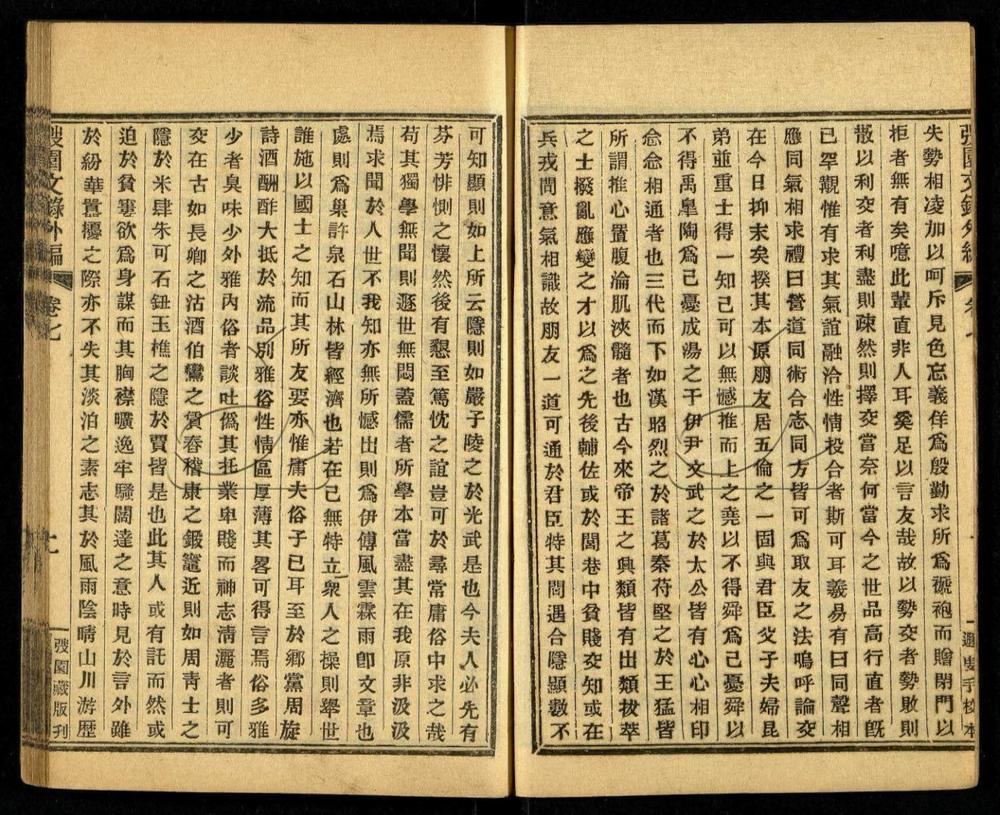 弢園文錄外編 卷七
遯叟手校本
失勢相凌加以呵斥見色忘義佯爲殷勤求所爲褫袍而贈閉門以
拒者無有矣噫此輩直非人耳奚足以言友哉故以勢交者勢敗則
散以利交者利盡則疎然則擇交當奈何當今之世品高行直者旣
已罕覯惟有求其氣誼融洽性情投合者斯可耳羲易有曰同聲相
應同氣相求禮曰營道同術合志同方皆可爲取友之法嗚呼論交
在今日抑末矣揆其本原朋友居五倫之一固與君臣父子夫婦昆
弟並重士得一知己可以無憾推而上之堯以不得舜爲己憂舜以
不得禹臯陶爲己憂成湯之于伊尹文武之於太公皆有心心相印
念念相通者也三代而下如漢昭烈之於諸葛秦苻堅之於王猛皆
所謂推心置腹淪肌浹髓者也古今來帝王之興類皆有出類拔萃
之士撥亂應變之才以爲之先後輔佐或於閭巷中貧賤交知或在
兵戎間意氣相識故朋友一道可通於君臣特其間遇合隱顯數不
可知顯則如上所云隱則如嚴子陵之於光武是也今夫人必先有
芬芳悱惻之懷然後有懇至篤忱之誼豈可於尋常庸俗中求之哉
苟其獨學無聞則遯世無悶蓋儒者所學本當盡其在我原非汲汲
焉求聞於人世不我知亦無所憾出則爲伊傅風雲霖雨卽文章也
處則爲巢許泉石山林皆經濟也若在己無特立衆人之操則舉世
誰施以國士之知而其所友要亦惟庸夫俗子已耳至於鄉黨周旋
詩酒酬酢大抵於流品別雅俗性情區厚薄其畧可得言焉俗多雅
少者臭味少外雅內俗者談吐僞其托業卑賤而神志淸灑者則可
交在古如長卿之沽酒伯鸞之賃舂稽康之鍛竈近則如周靑士之
隱於米肆朱可石鈕玉樵之隱於賈皆是也此其人或有託而然或
迫於貧窶欲爲身謀而其胸襟曠逸牢騷闊達之意時見於言外雖
於紛華囂攘之際亦不失其淡泊之素志其於風雨陰晴山川游歷
弢園文錄外編 卷七
弢園藏版刊